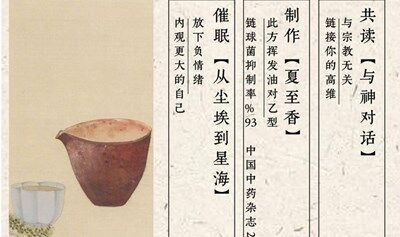 共读【与神对话】
与宗教无关
链接你的高维
制作【夏至香】
此方挥发油对乙型
链球菌抑制率%93
中国中药杂志2
催眠【从尘埃到星海】
放下负情绪
内观更大的自己